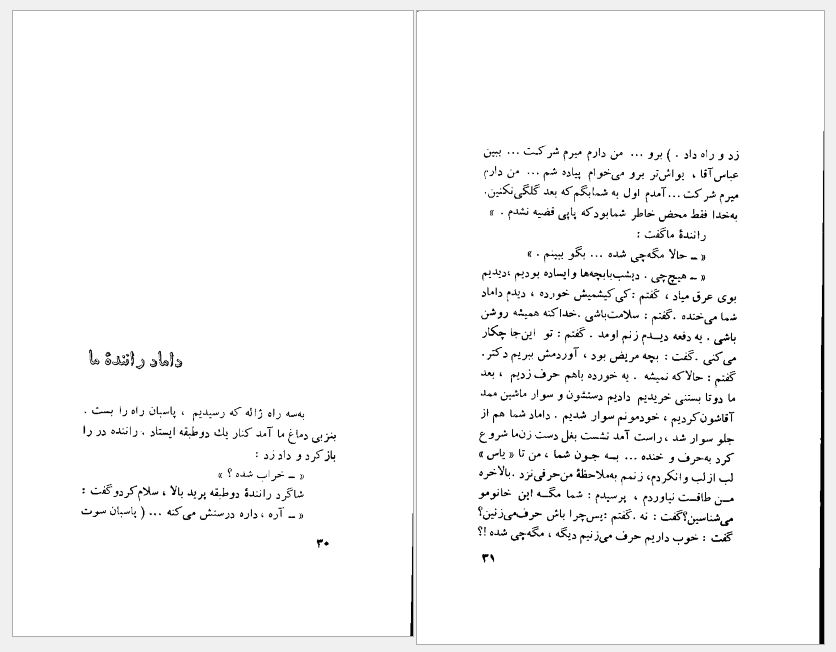 داماد رانندهٔ ما
به‌سه راه ژاله که رسیدیم ، پاسبان راه را بست .
بنز بی دماغ ما آمد کنار یك دوطبقه ایستاد . راننده در را
باز کرد و داد زد :
« ــ خراب شده ؟ »
شاگرد رانندهٔ دوطبقه پرید بالا ، سلام کرد و گفت :
« ــ آره ، داره درستش می‌کنه ... ( پاسبان سوت
۳۰
زد و راه داد . ) برو ... من دارم میرم شرکت ... ببین
عباس‌آقا ، یواش‌تر برو می‌خوام پیاده شم ... من دارم
میرم شرکت ... آمدم اول به شما بگم که بعد گلگی نکنین.
به‌خدا فقط محض خاطر شما بود که پاپی قضیه نشدم . »
رانندهٔ ما گفت :
« ــ حالا مگه‌چی شده ... بگو ببینم . »
« ــ هیچ‌چی . دیشب با بچه‌ها وایساده بودیم ،دیدیم
بوی عرق میاد ، گفتم : کی کیشمیش خورده ، دیدم داماد
شما می‌خنده . گفتم : سلامت‌باشی . خدا کنه همیشه روشن
باشی . یه دفعه دیــدم زنم اومد . گفتم : تو این‌جا چکار
می‌کنی . گفت : بچه مریض بود ، آوردمش ببریم دکتر .
گفتم : حالا که نمیشه . یه خورده باهم حرف زدیم ، بعد
ما دوتا بستنی خریدیم دادیم دستشون و سوار ماشین ممد
آقاشون کردیم ، خودمونم سوار شدیم . داماد شما هم از
جلو سوار شد ، راست آمد نشست بغل دست زن‌ما شروع
کرد به‌حرف و خنده ... بــه جــون شما ، من تا « یاس »
لب از لب وانکردم، زنمم به‌ملاحظهٔ من حرفی نزد .بالاخره
مــن طاقت نیاوردم ، پرسیدم : شما مگــه این خانومو
می‌شناسین؟گفت : نه . گفتم :پس‌چرا باش حرف‌می‌زنین؟
گفت : خوب داریم حرف می‌زنیم دیگه ، مگه‌چی شده !؟
۳۱